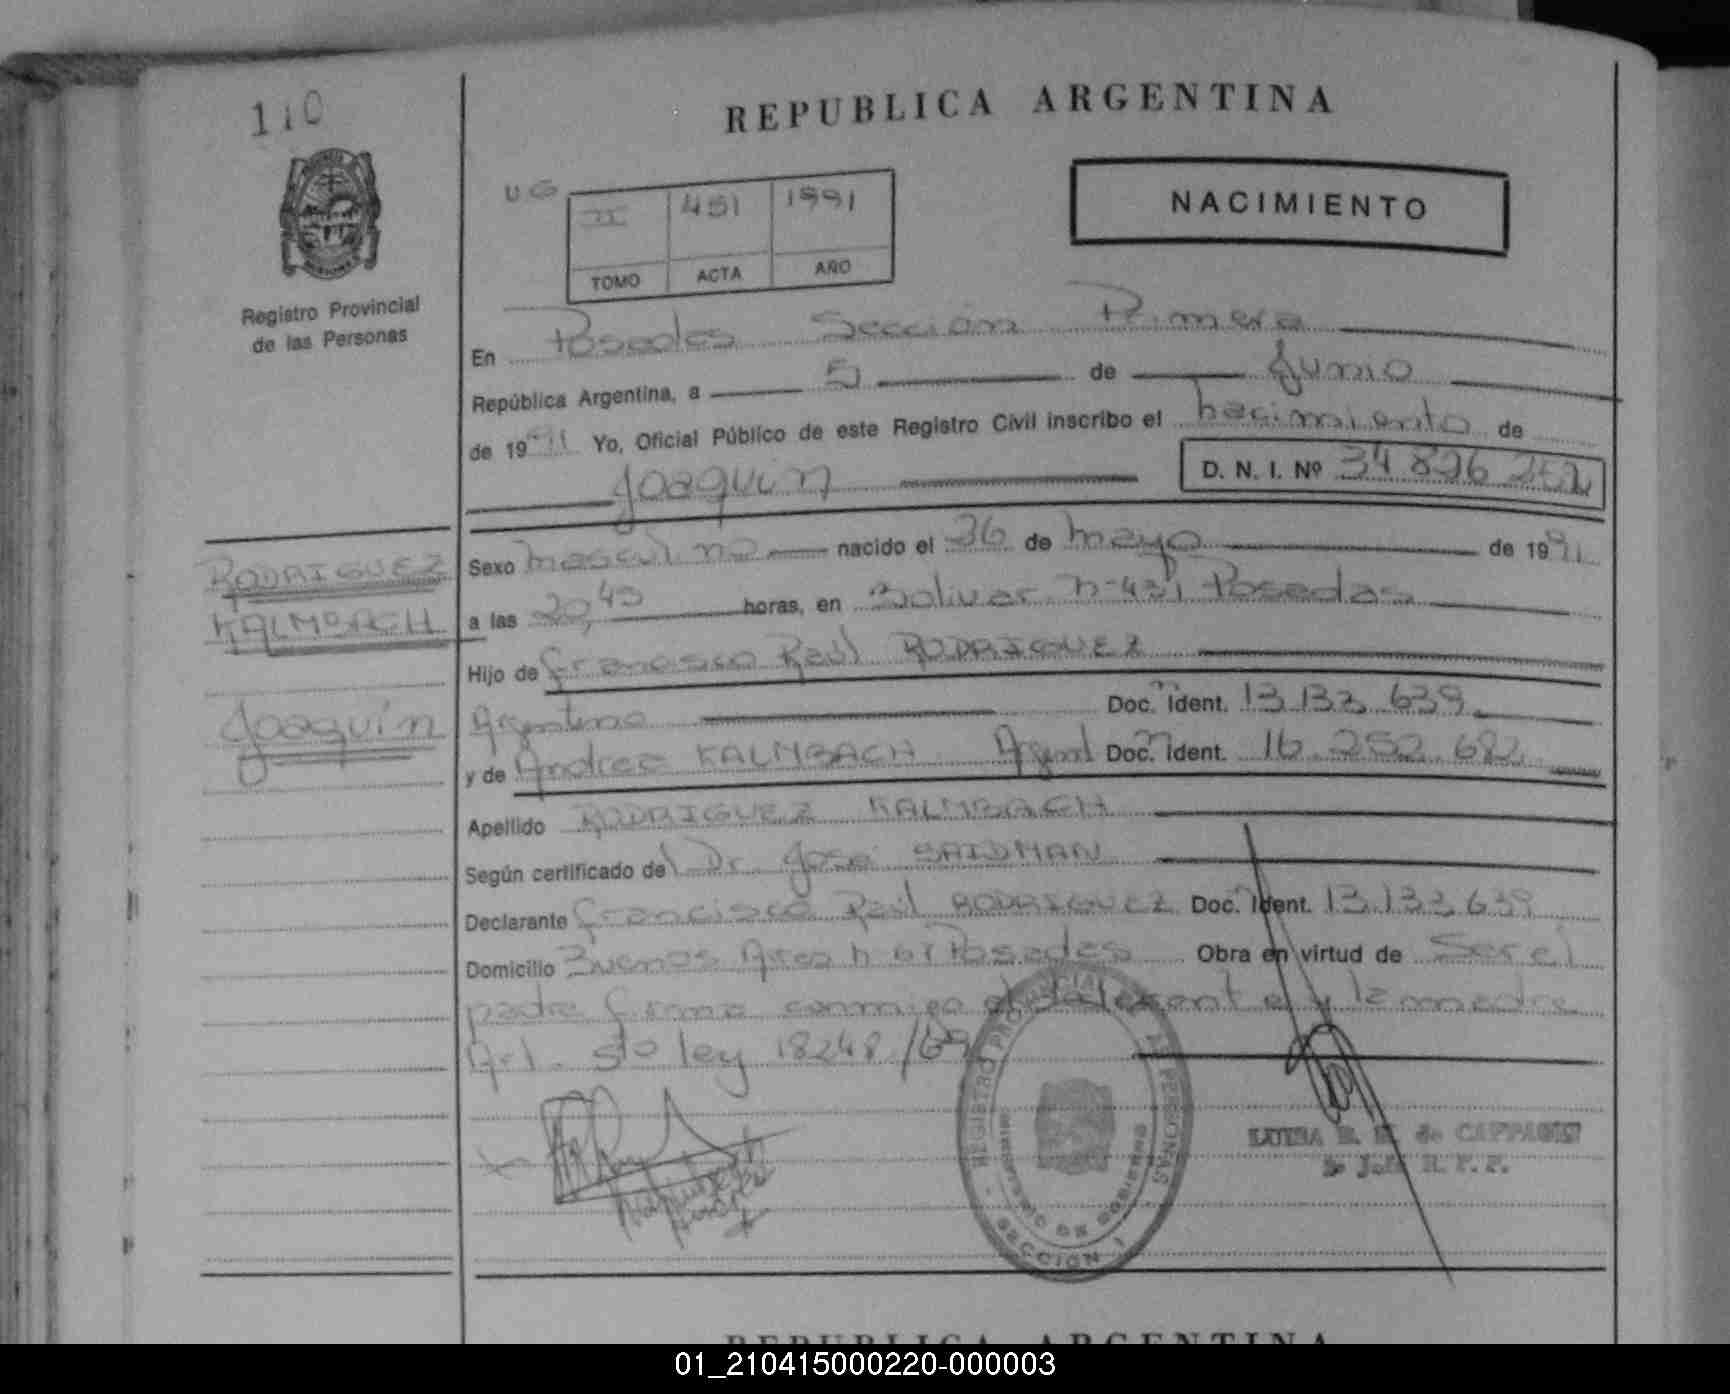 110
REPUBLICA ARGENTINA
UG
II 451 1991
TOMO ACTA AÑO
NACIMIENTO
Registro Provincial
de las Personas
En Posadas Sección Primera
República Argentina, a 5 de Junio
de 1991 Yo, Oficial Público de este Registro Civil inscribo el nacimiento de
Joaquín D. N. I. Nº 34 826
RODRIGUEZ
KALMBACH
Joaquín
Sexo masculino nacido el de mayo de 1991
a las 20,45 horas, en Bolivar n-451 Posadas
Hijo de Francisco Raúl RODRIGUEZ
Argentino Doc. Ident. 13.133.639
y de Andrea KALMBACH Argent Doc. Ident. 16.252.682
Apellido RODRIGUEZ KALMBACH
Según certificado del Dr. José SAIDMAN
Declarante Francisco Raúl RODRIGUEZ Doc. Ident. 13.133.639
Domicilio Buenos Aires n Posadas Obra en virtud de Ser el
padre firma conmigo el declarante y la madre
Art. 5to ley 18248/69
REGISTRO PROVINCIAL DE LAS PERSONAS
MINISTERIO DE GOBIERNO
SECCION 1
LUISA de
R. P. P.
REPUBLICA ARGENTINA
01_210415000220-000003